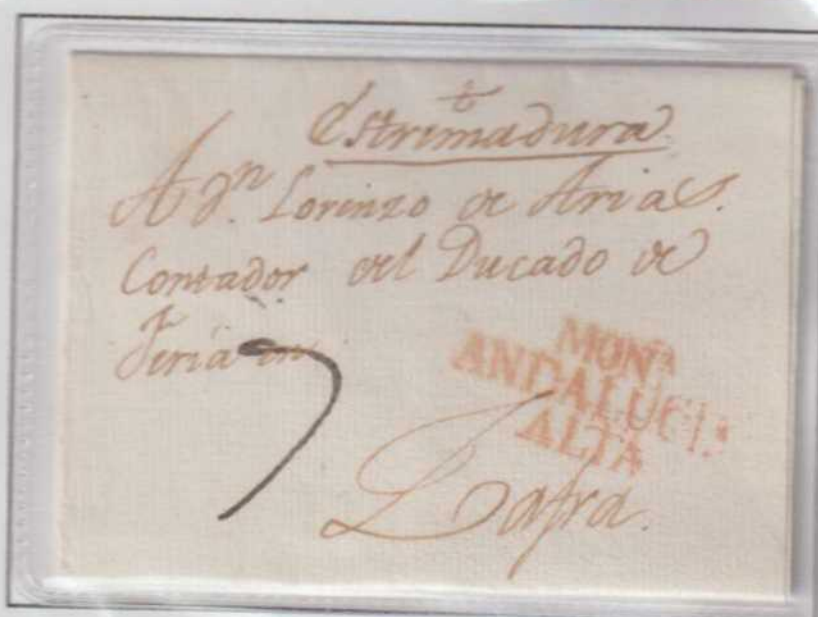 Estrimadura
A Dn. Lorenzo de Arias.
Contador del Ducado de
Feria en
7
MONA
ANDALUCIA
ALTA
Zafra.